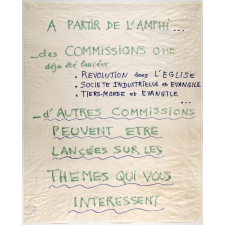 A PARTIR DE L'AMPHI ...
_des COMMISSIONS ont
déjà été lancées
• REVOLUTION dans L'EGLISE
• SOCIETE INDUSTRIELLE et EVANGILE
• TIERS-MONDE et EVANGILE
...
_d'AUTRES COMMISSIONS
PEUVENT ETRE
LANCÉES SUR LES
THEMES QUI VOUS
INTERESSENT